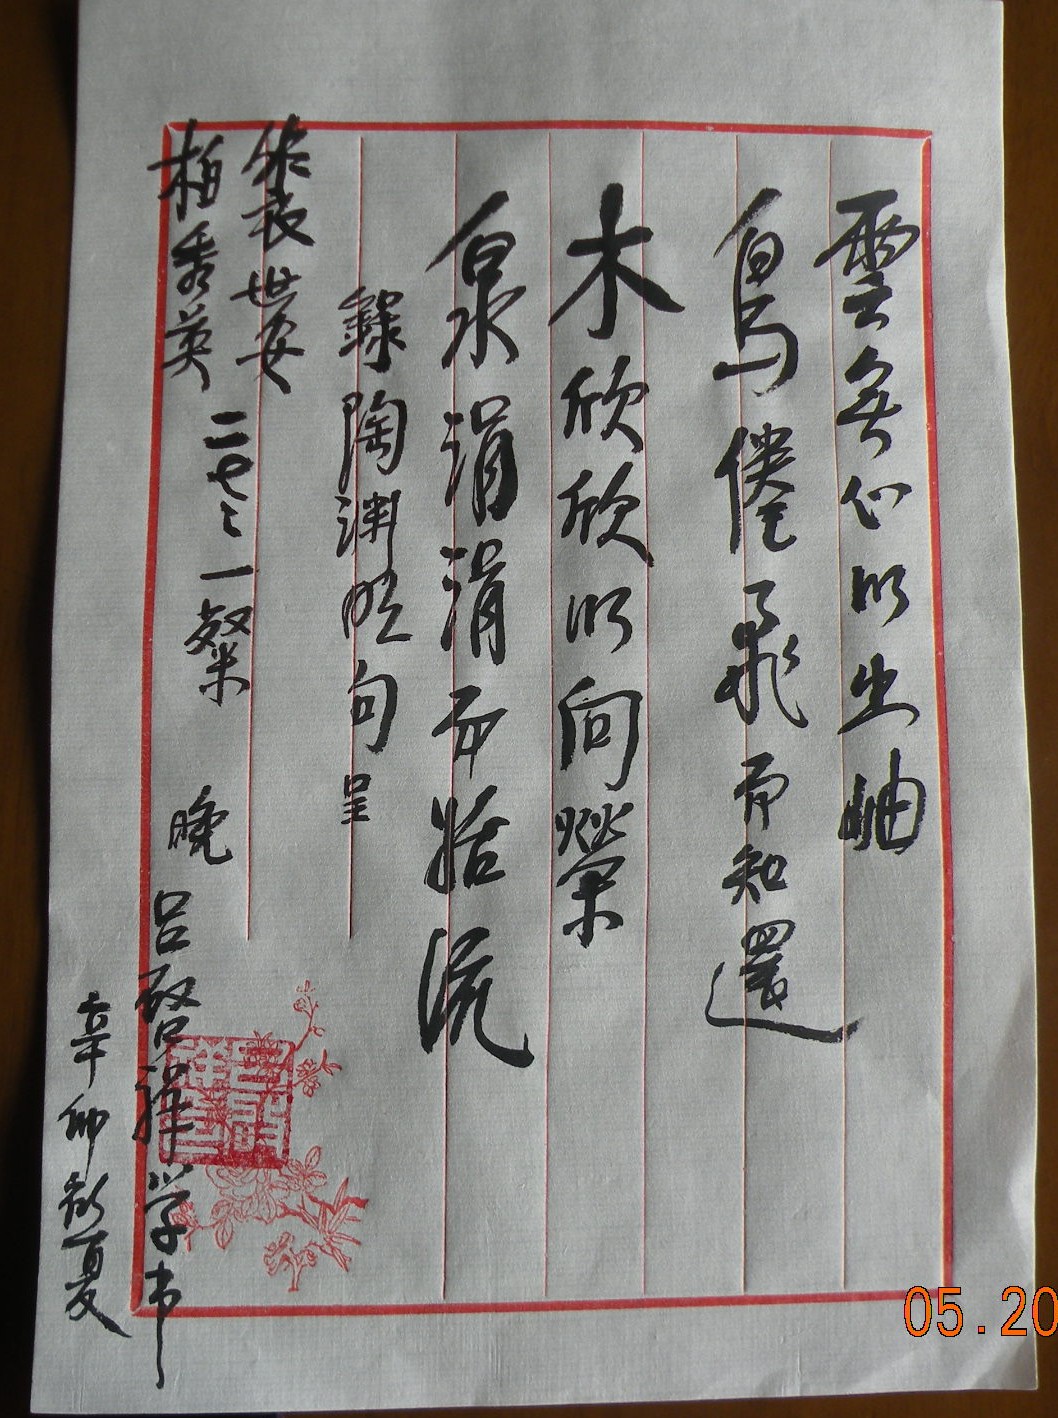 雲無心以出岫
鳥倦飛而知還
木欣欣以向榮
泉涓涓而始流
錄陶渊明句呈
裴世安
柏秀英
二老一粲
晚
吕啓祥学书
辛卯初夏
05.20